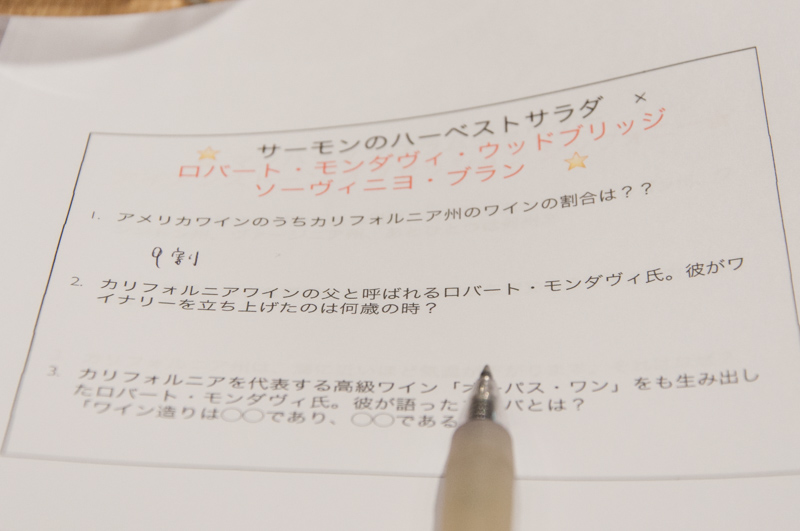 サーモンのハーベストサラダ ×
ロバート・モンダヴィ・ウッドブリッジ
ソーヴィニヨ・ブラン
1. アメリカワインのうちカリフォルニア州のワインの割合は？？
9割
2. カリフォルニアワインの父と呼ばれるロバート・モンダヴィ氏。彼がワ
イナリーを立ち上げたのは何歳の時？
3. カリフォルニアを代表する高級ワイン「オーパス・ワン」をも生み出し
たロバート・モンダヴィ氏。彼が語った バとは？
「ワイン造りは◯◯であり、◯◯である